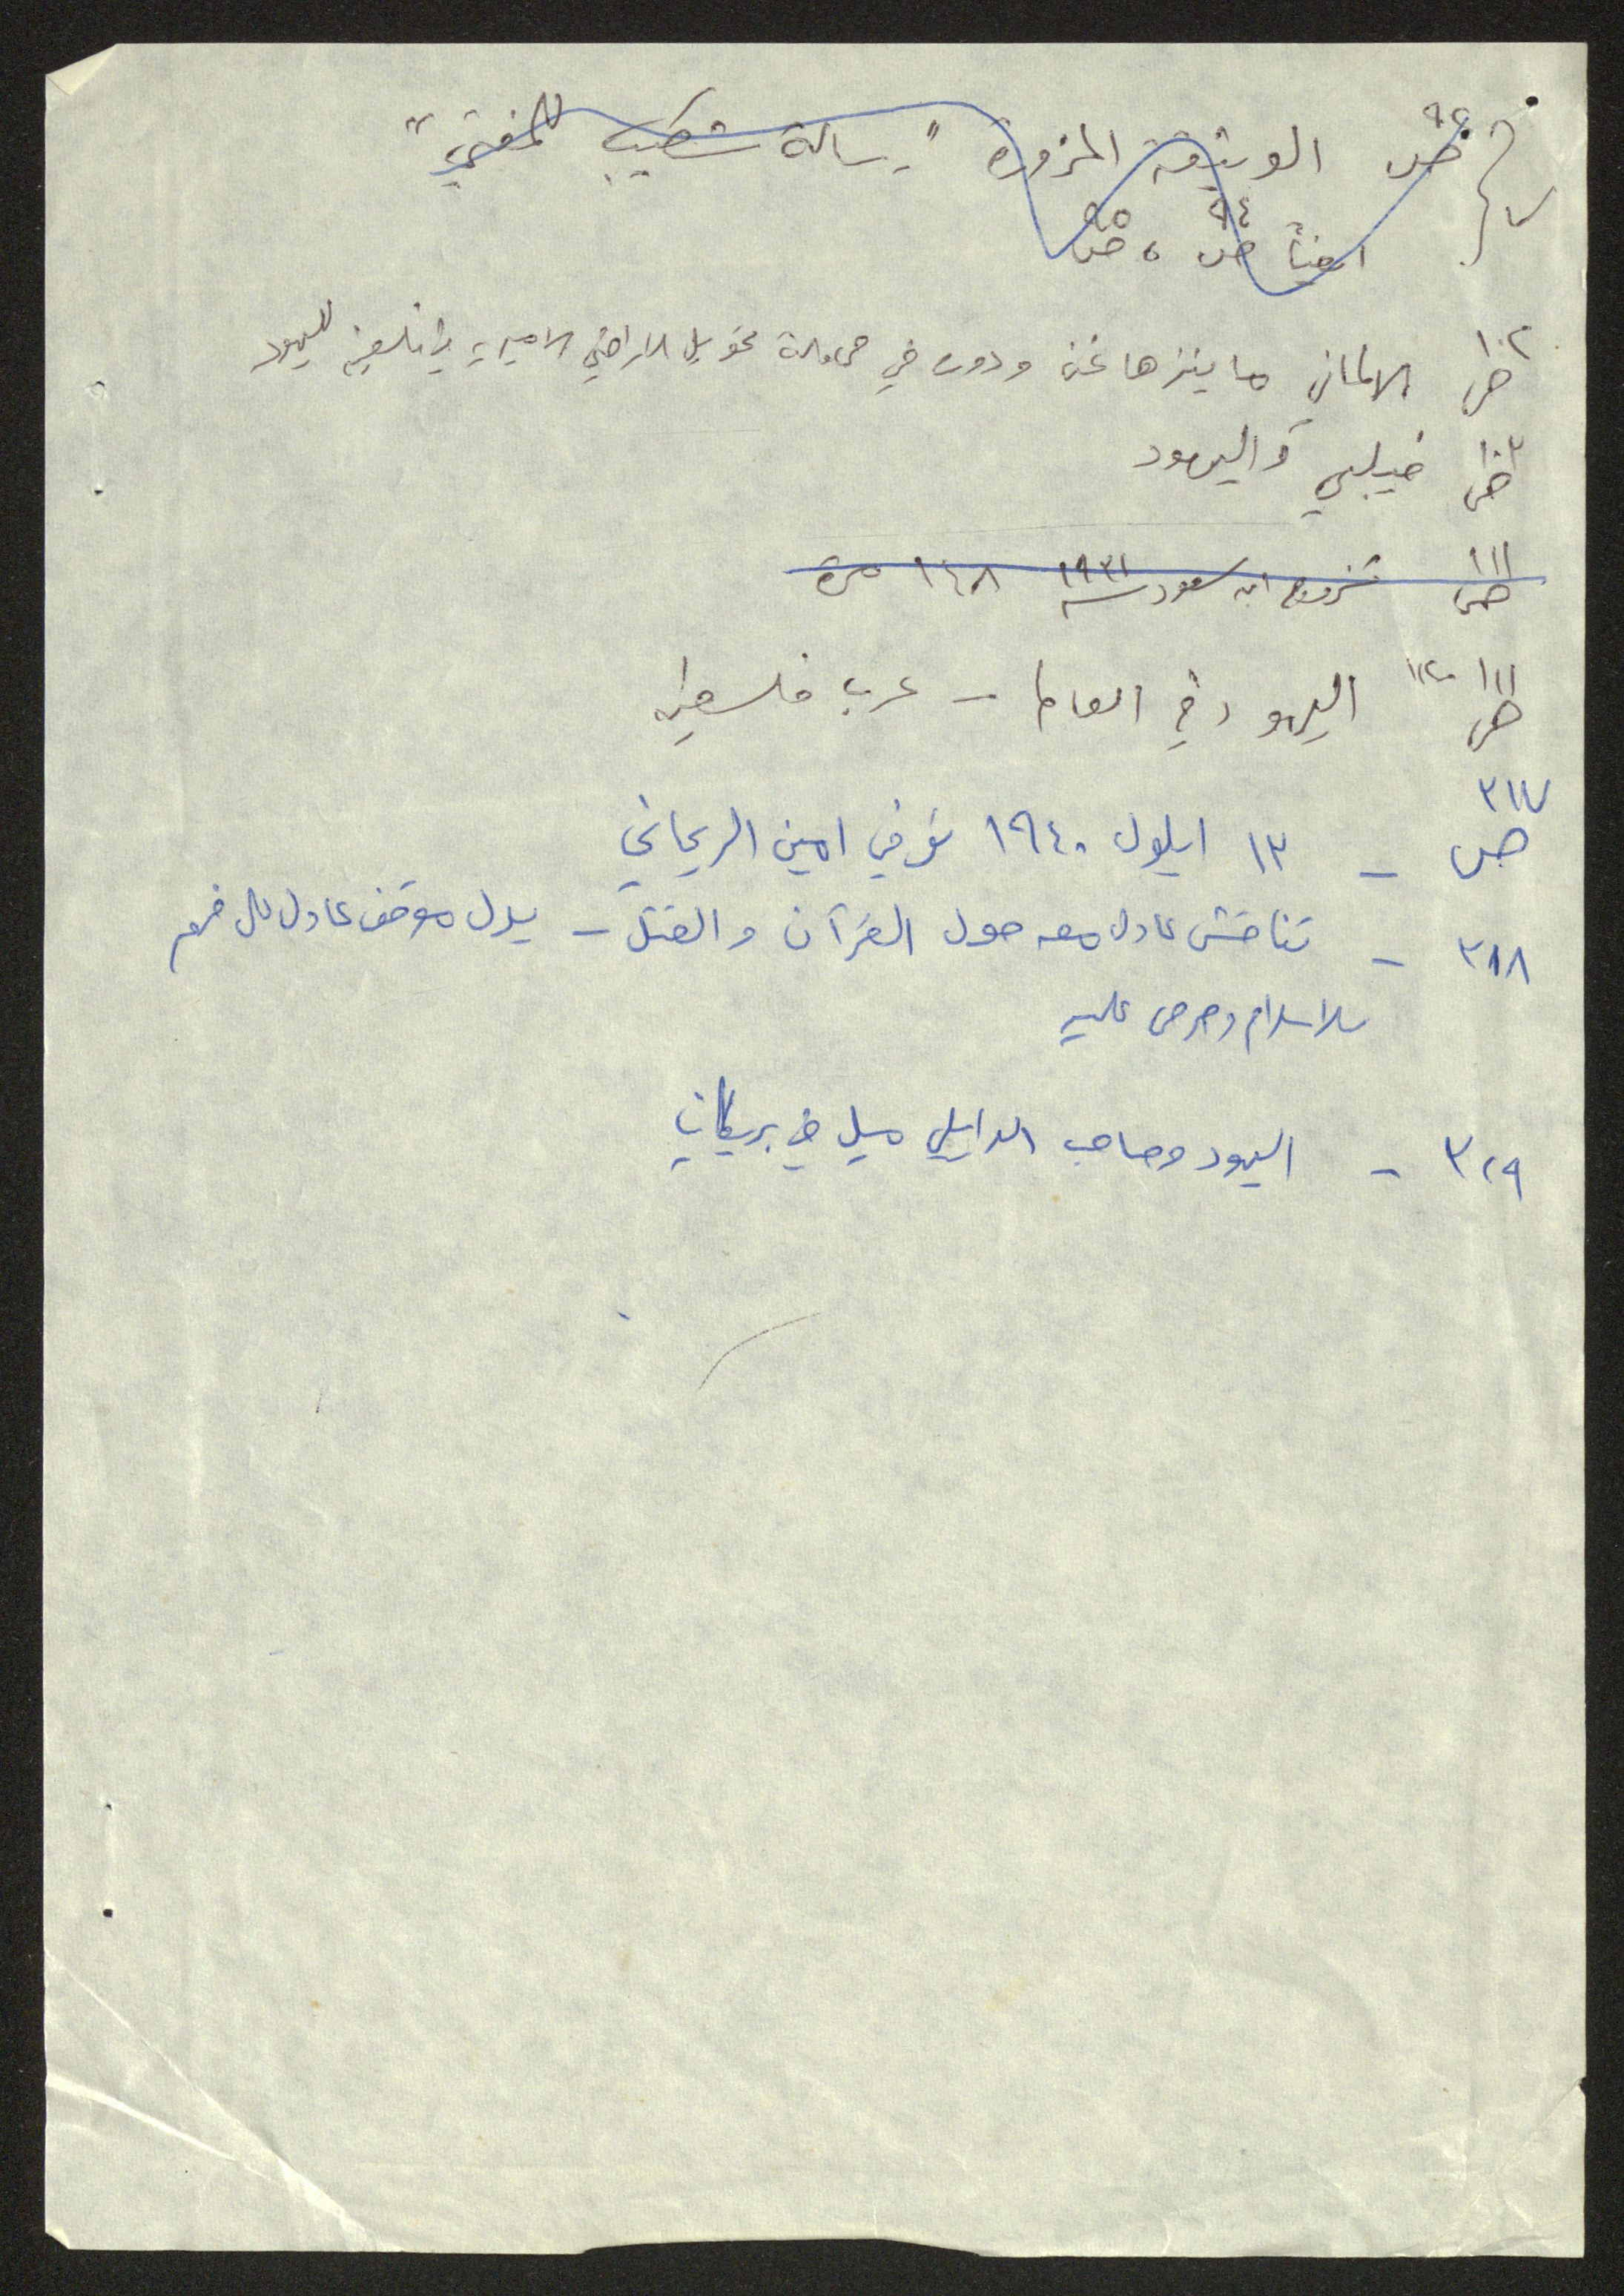 ص ٩٤ الوثيقة المزورة "رسالة شكيب للمفتي"
ايضاً ص ٩٤ ، ص ٩٥
ص ١٠٢ الالماني ماينزهاغن ودوره في محاولة تحويل الاراضي الاميرية في فلسطين لليهود
ص ١٠٣ فيلبي واليهود
ص ١١١ تزوج ابن سعود سنة ١٩٣١ ١٤٨ مرة
ص ١١١ - ١١٢ اليهود في العالم - عرب فلسطين
ص ٣١٧ - ١٣ ايلول ١٩٤٠ توفي امين الريحاني
٣١٨ - تناقش عادل معه حول القرآن والقتل - يدل موقف عادل على فهم
للاسلام وحرص عليه
٣٢٩ - اليهود وصاحب الدايلي ميل في بريطانيا